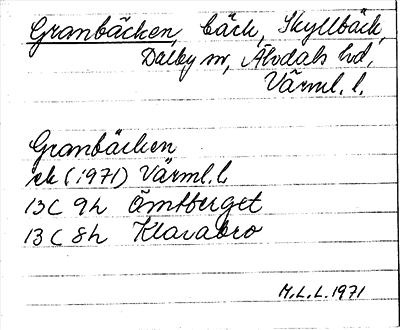 Granbäcken, bäck, Skyllbäck,
Dalby sn, Älvdals hd,
Värml. l.
Granbäcken
ek (1971) Värml. l
13C 9h Ömtberget
13C 8h Klarabro
M.L.L. 1971